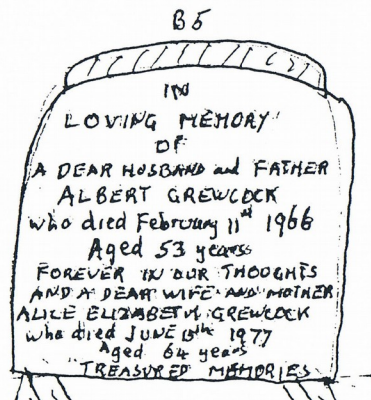 B5
IN
LOVING MEMORY
OF
A DEAR HUSBAND and FATHER
ALBERT GREWCOCK
who died February 11th 1966
Aged 53 years
FOREVER IN OUR THOUGHTS
AND A DEAR WIFE AND MOTHER
ALICE ELIZABETH GREWCOCK
who died JUNE 15th 1977
Aged 64 years
TREASURED MEMORIES